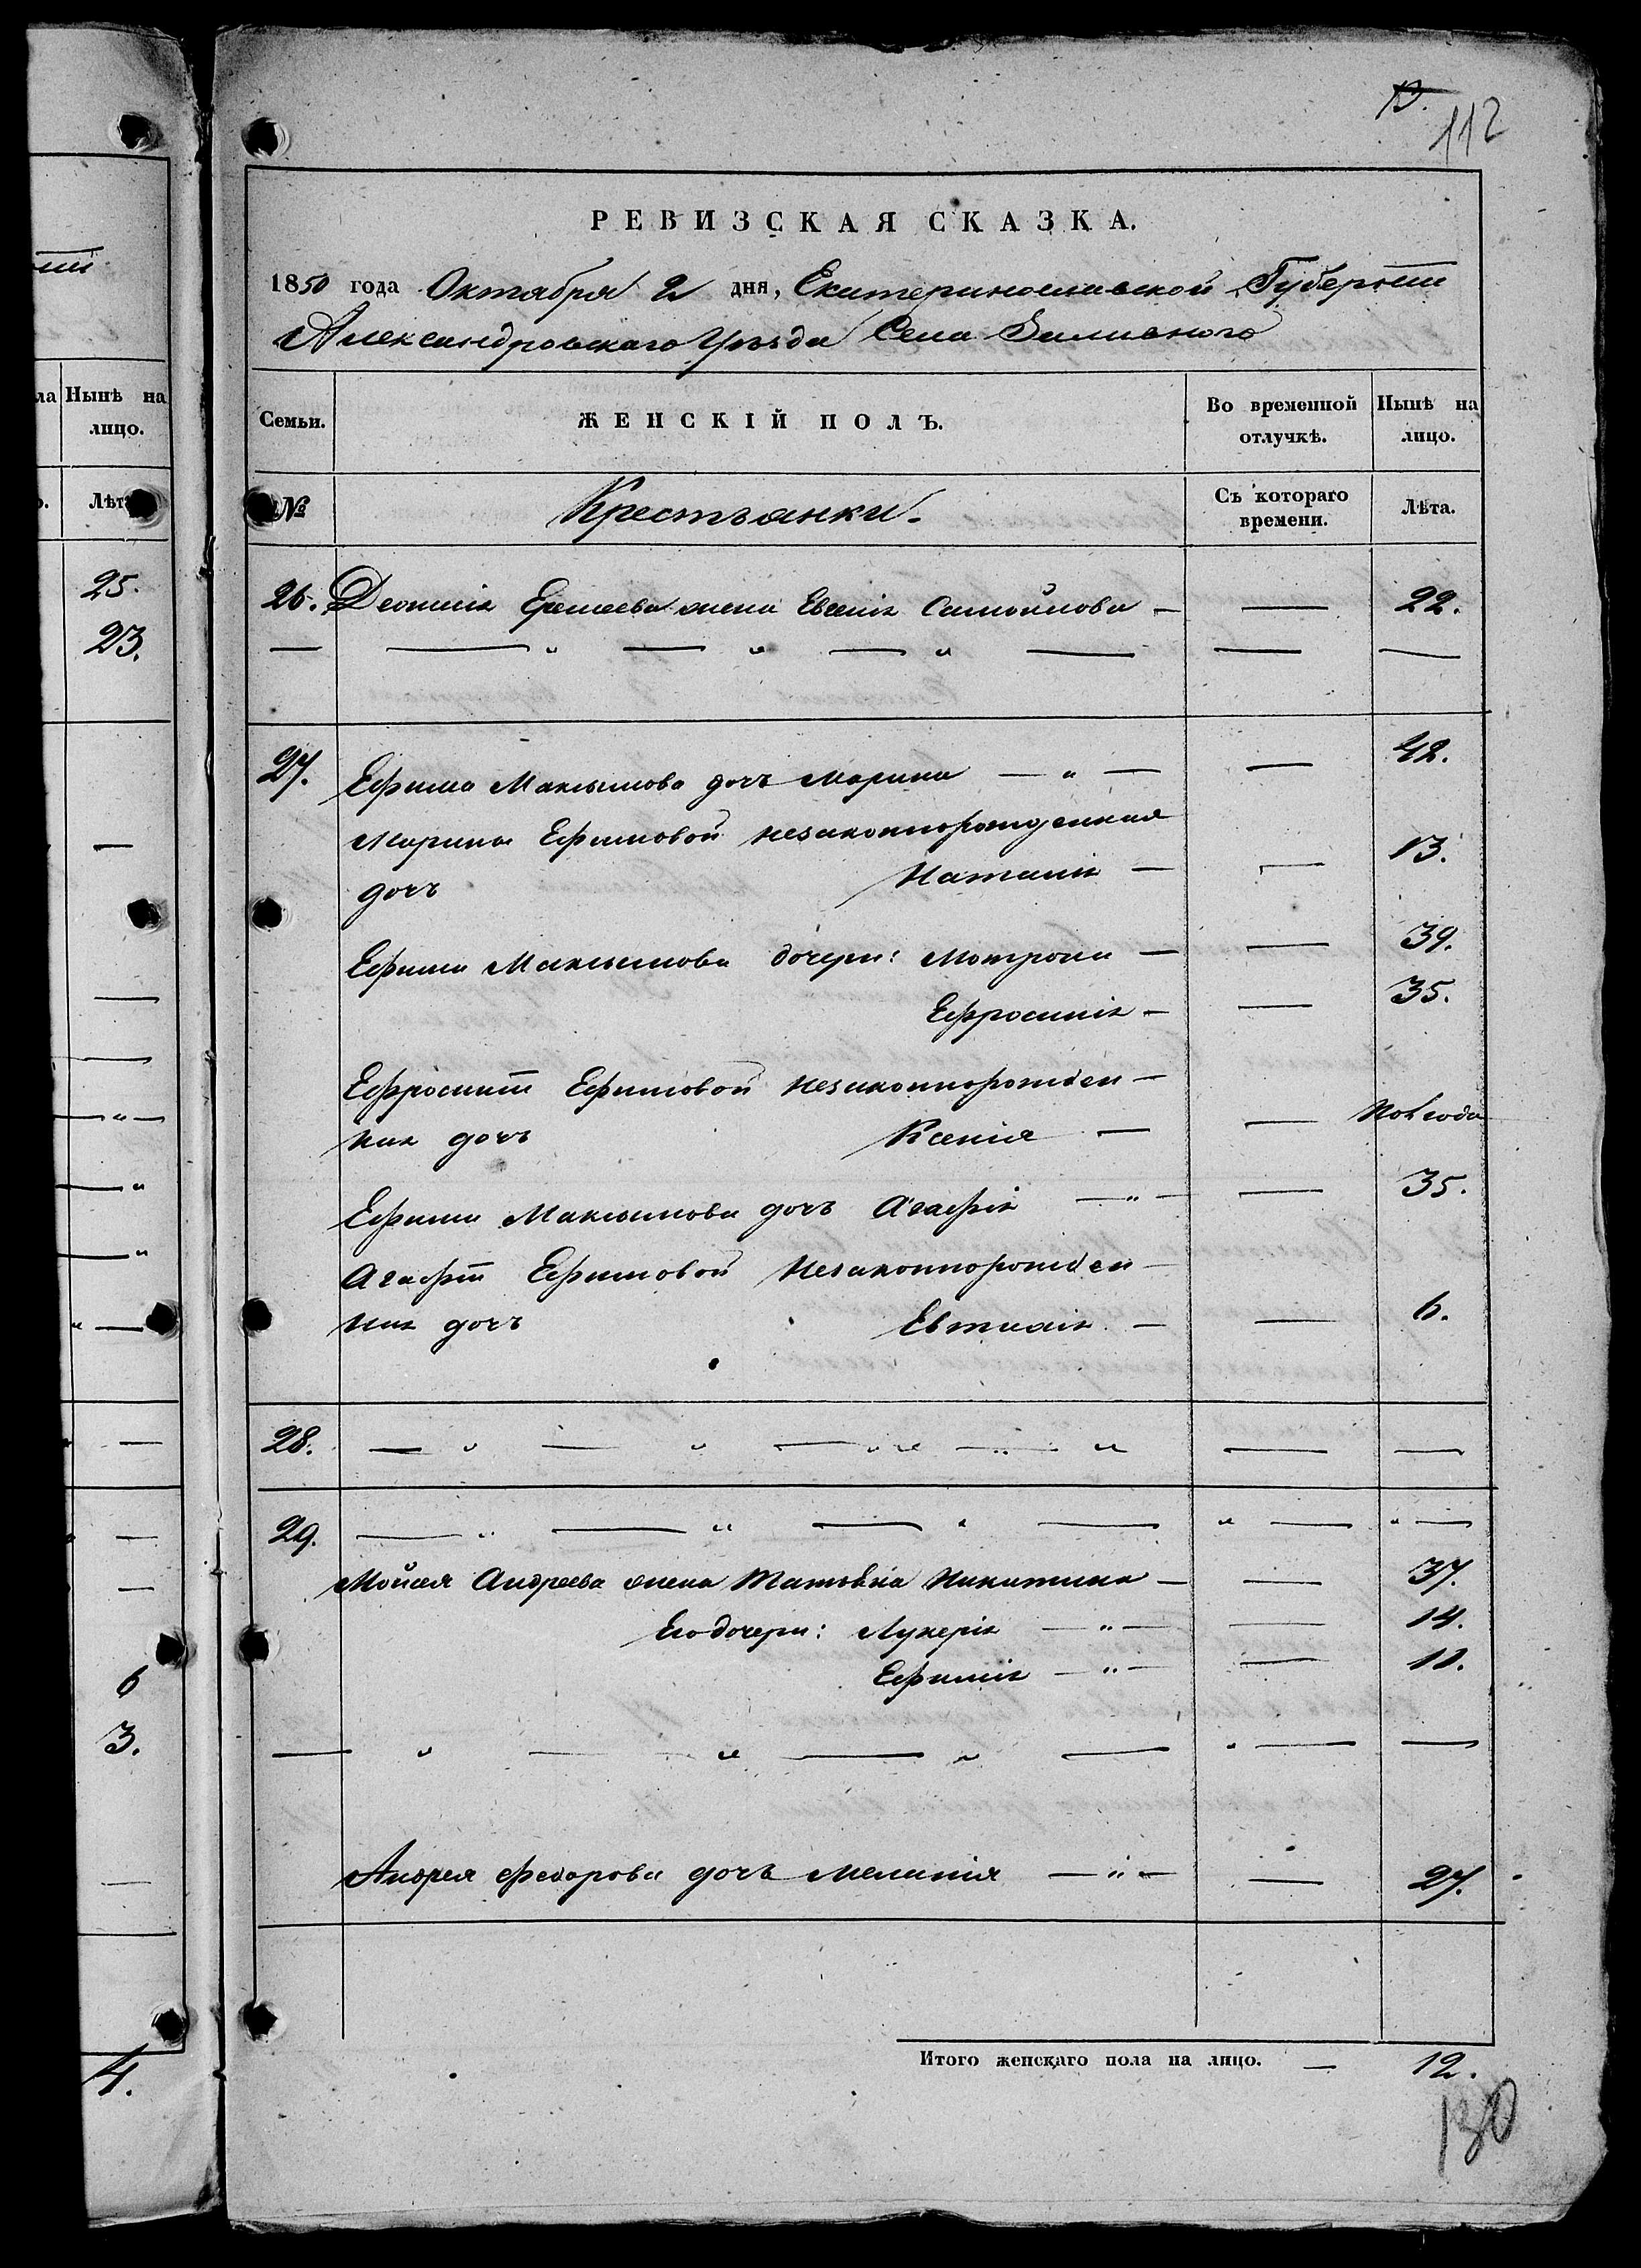 13.
112
РЕВИЗСКАЯ СКАЗКА.
1850 года Октября 2 дня, Екатеринославской Губерніи
Александровскаго Уѣзда Села Заливного
Семьи.
ЖЕНСКІЙ ПОЛЪ.
Во временной отлучкѣ.
Нынѣ на лицо.
№
Крестьянки.
Съ котораго времени.
Лѣта.
26. Деонисія Еремеева жена Евгенія Самойлова — — 22.
27. Ефима Максимова дочь Марина — " — — 42.
Марины Ефимовой незаконнорожденная
дочь Наталія — — 13.
Ефима Максимова дочери: Мотрона — — 39.
Ефросинія — — 35.
Ефросиніи Ефимовой незаконнорожден-
ная дочь Ксенія — — года
Ефима Максимова дочь Агафія — " — — 35.
Агафіи Ефимовой незаконнорожден-
ная дочь — — 6.
28. — " — " — " — " — —
29. — " — " — " — " — " —
Мойсея Андреева жена Татьяна Никитина — — 37.
Его дочери: Лукерія — " — — 14.
Ефимія — " — — 11.
— " — " — " — " — —
Андрея Федорова дочь Меланія — " — — 27.
Итого женскаго пола на лицо. — 12.
130
ніи
ла
Нынѣ на лицо.
Лѣта
25.
23.
6
3.
4.